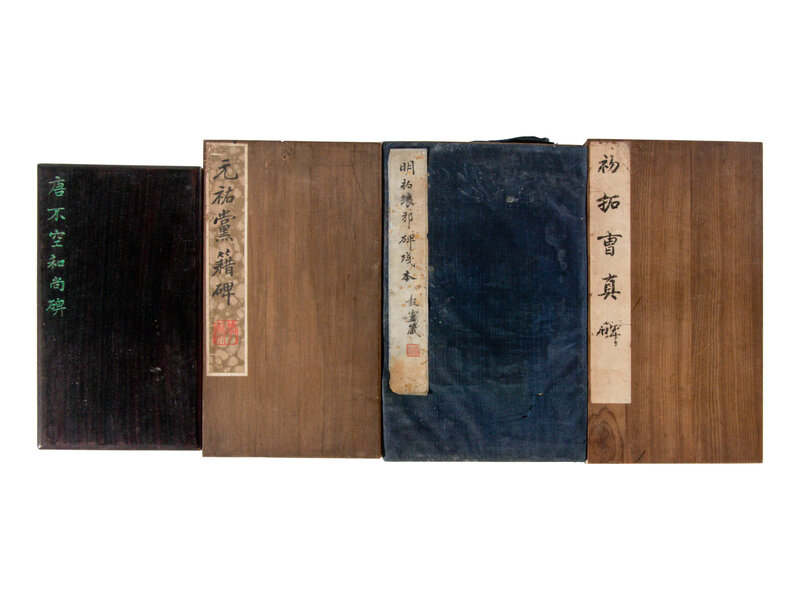 唐不空和尚碑
元祐黨籍碑
明拓琅邪碑殘本
初拓曹真碑